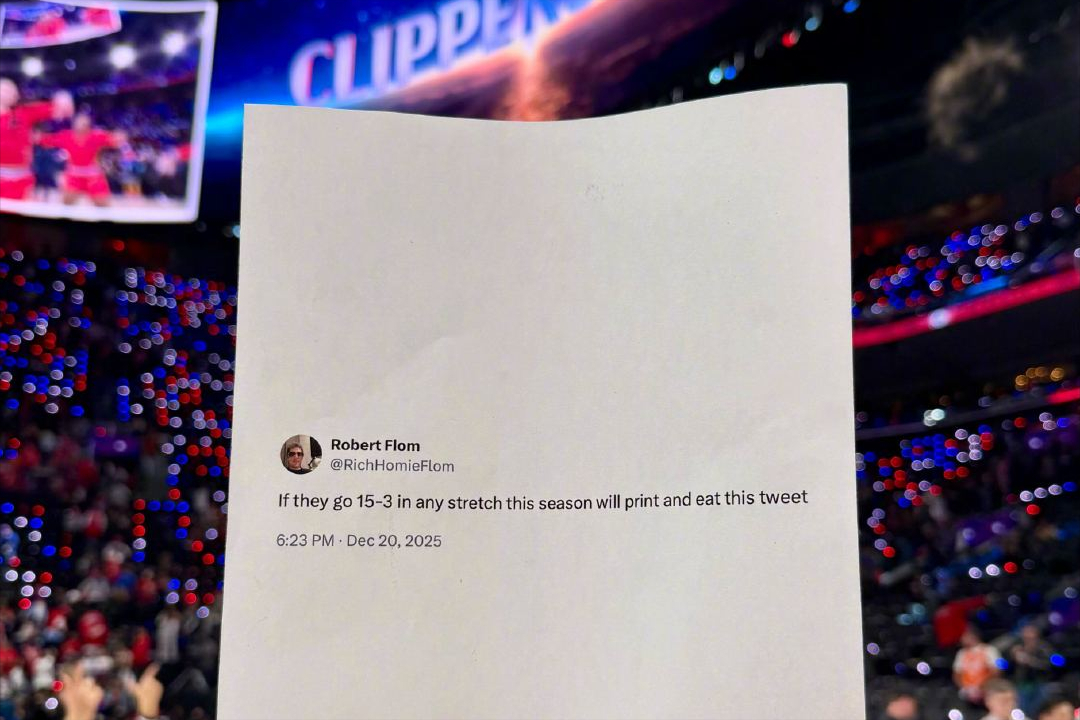 CLIPPERS
Robert Flom
@RichHomieFlom
If they go 15-3 in any stretch this season will print and eat this tweet
6:23 PM · Dec 20, 2025